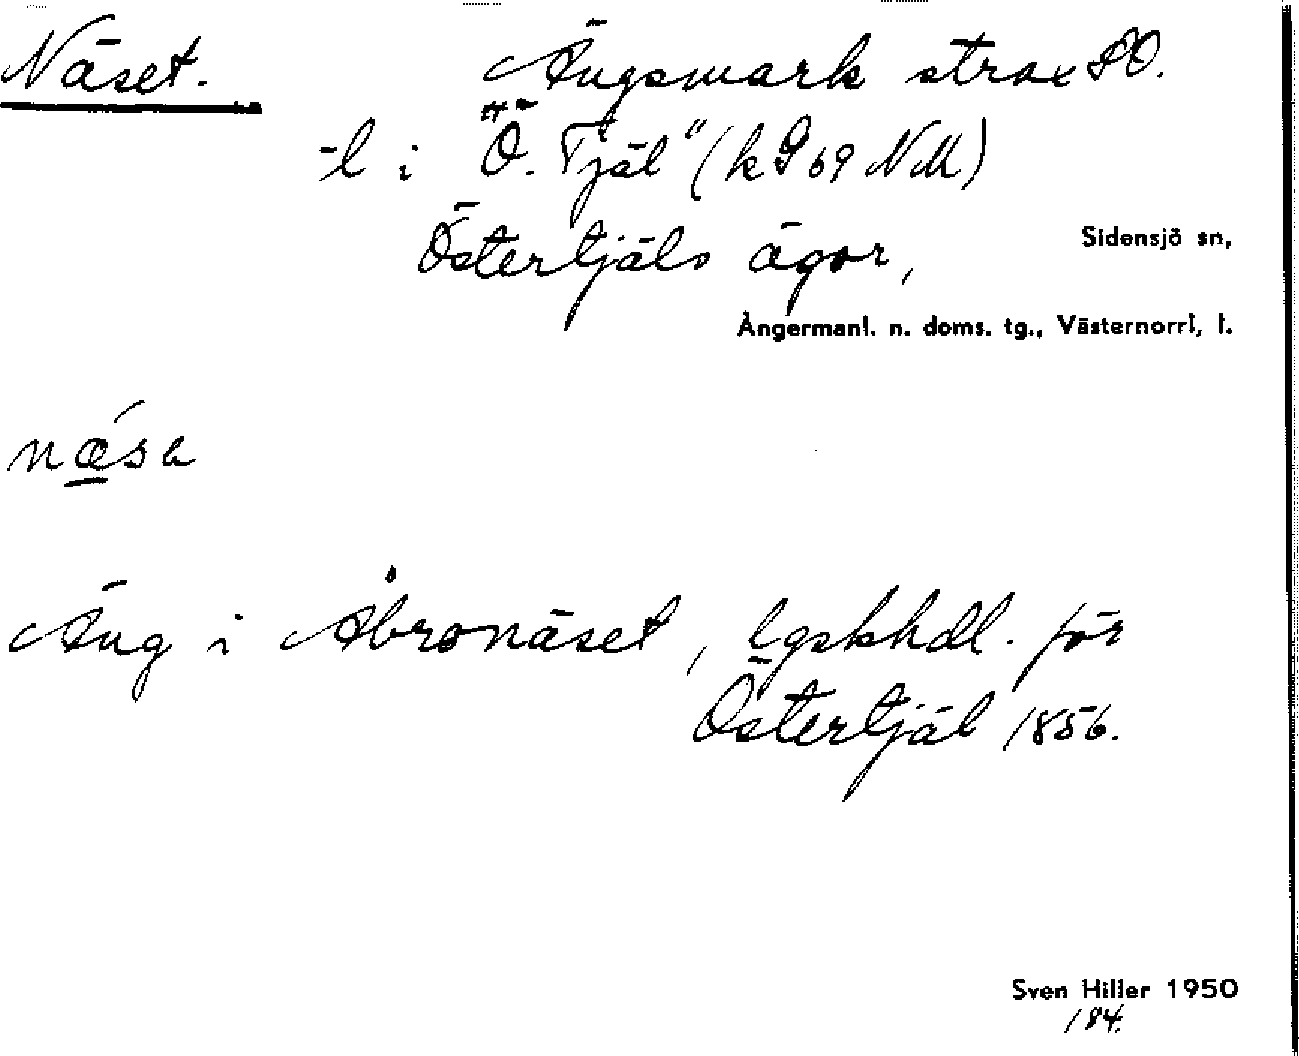 Näset. Ängsmark strax SO.
-l i "Ö. Tjäl" (kS 69 NM)
Östertjäls ägor,
Sidensjö sn,
Ångermanl. n. doms. tg., Västernorrl. l.
næ´sɐ
Äng i Åbronäset, lgskhdl. för
Östertjäl 1856.
Sven Hiller 1950
184.